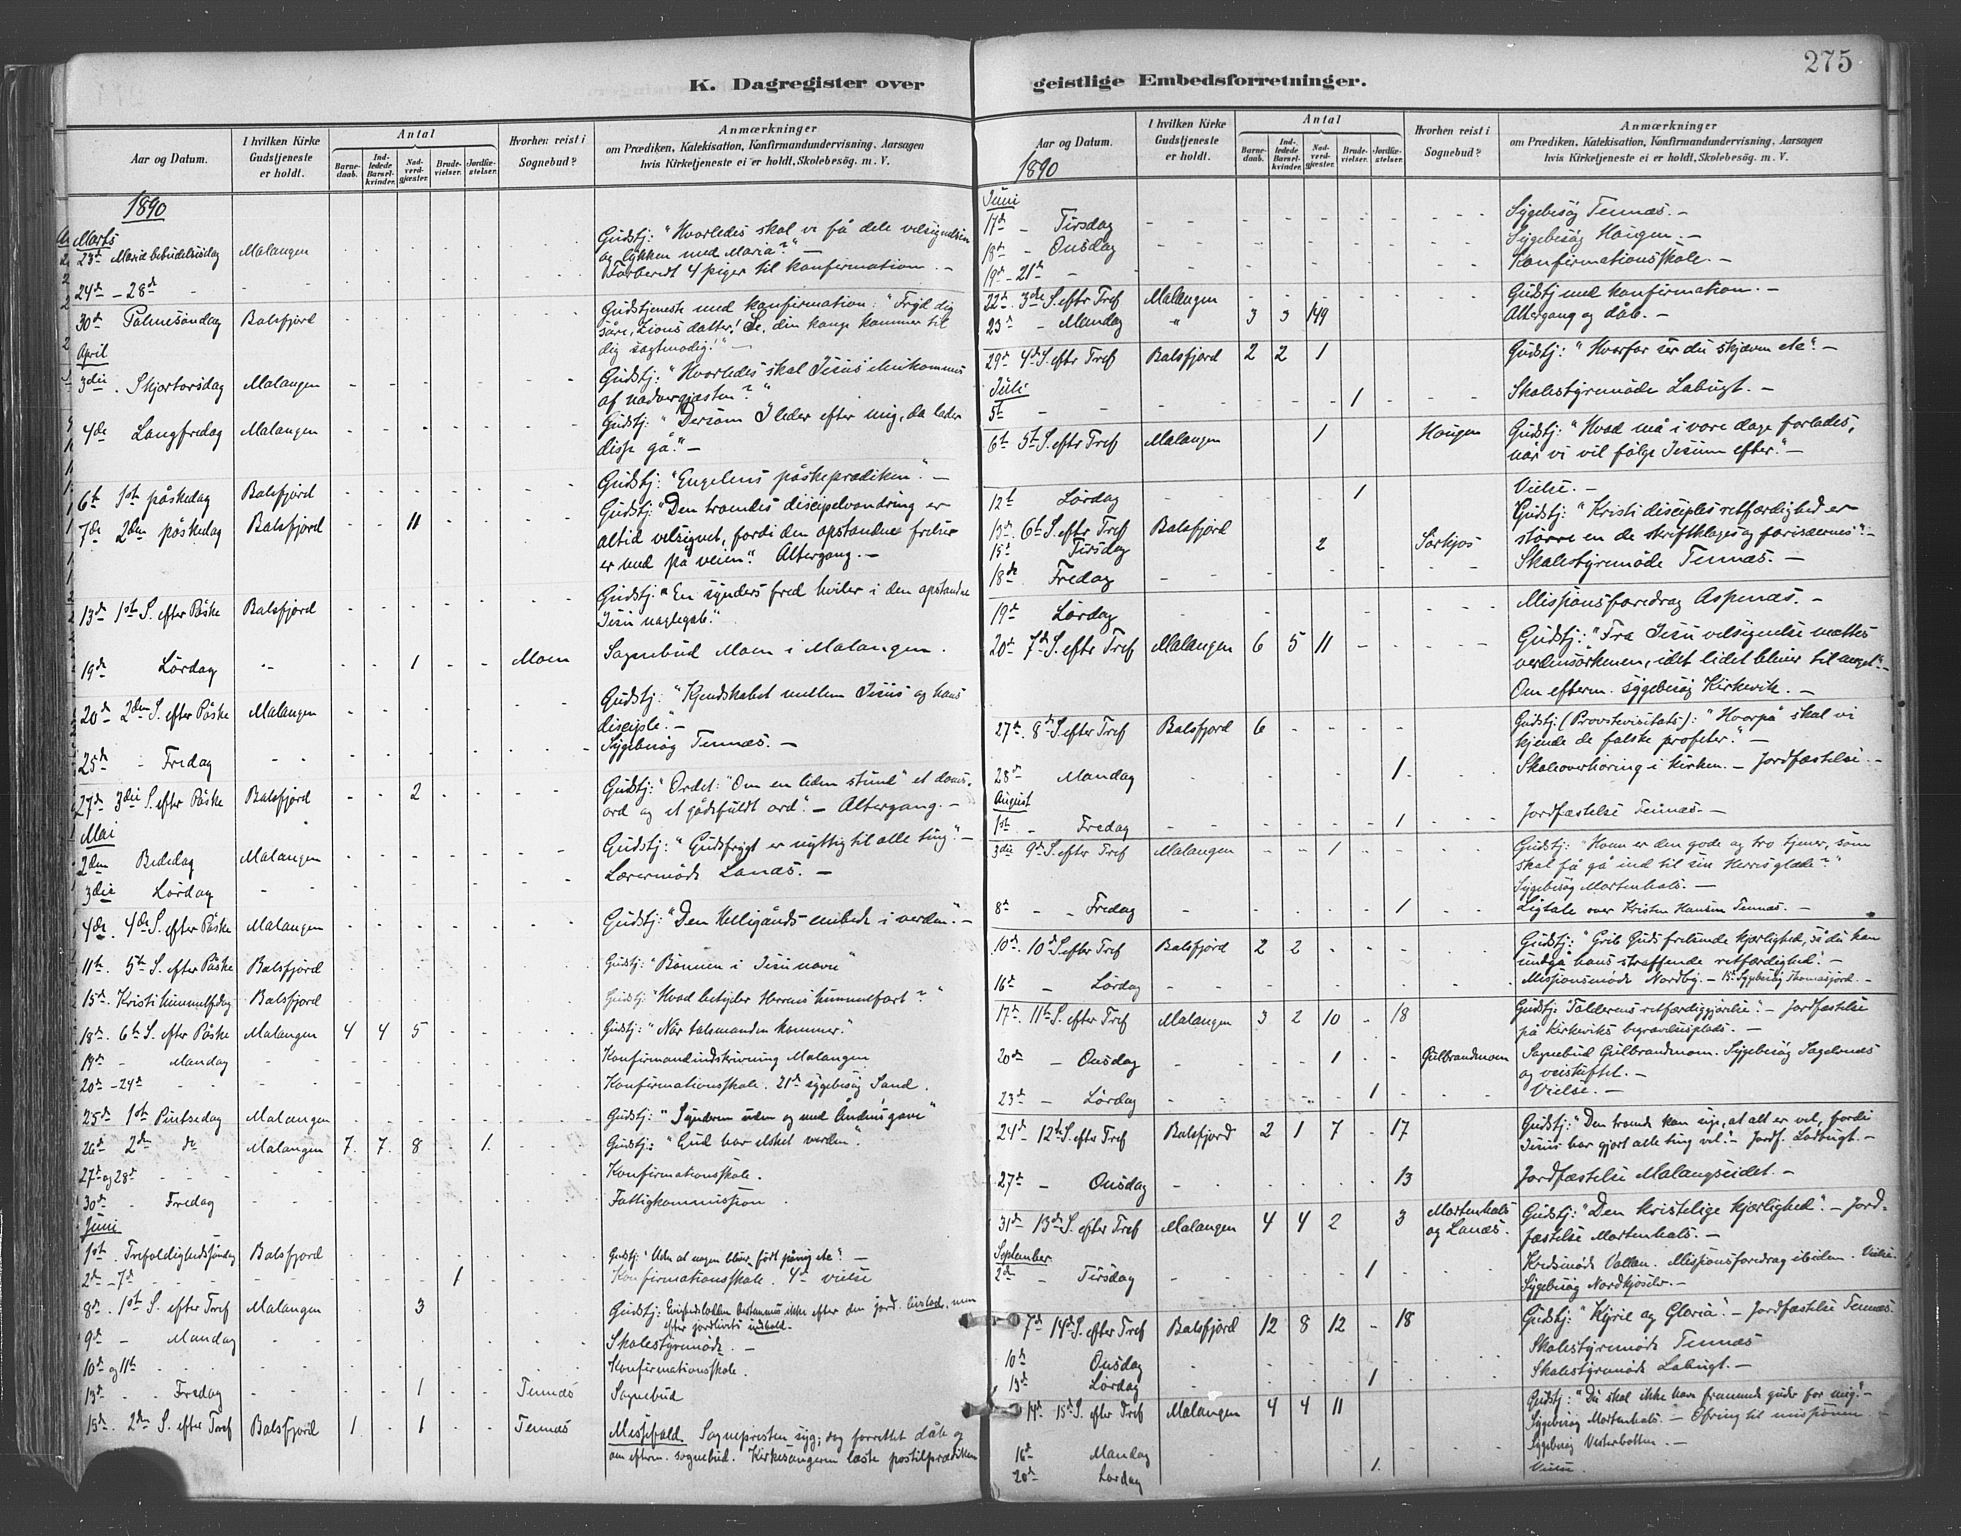 275
K. Dagregister over
geistlige Embedsforretninger.
Aar og Datum.
I hvilken Kirke Gudstjeneste er holdt.
Antal
Barnedaab.
Indledede Barselkvinder.
Nadverdgjæster.
Brudevielser.
Jordfæstelser.
Hvorhen reist i Sognebud?
Anmærkninger
om Prædiken, Katekisation, Konfirmandundervisning, Aarsagen
hvis Kirketjeneste ei er holdt, Skolebesög. m. V.
1890
Marts
23d Mariæ bebudelsesdag Malangen - - - - - Gudstj: "Hvorledes skal vi få dele velsignelsen
og lykken med Maria?" -
24de - 28d - - Forberedt 4 piger til konfirmation. -
30d Palmesøndag Balsfjord - - Gudstjeneste med konfirmation: "Fryd dig
såre, Zions datter! Se, din konge kommer til
dig sagtmodig!" -
April
3die . Skjærtorsdag Malangen - - Gudstj: "Hvorledes skal Jesus
af nadvergjæsten?"
4de Langfredag Malangen - - Gudstj: "Dersom I leder efter mig, da lader
disse gå." -
6t 1st påskedag Balsfjord - - Gudstj: "Engelens påskeprædiken." -
7de 2den påskedag Balsfjord - - 11 - - Gudstj: "Den troendes discipelvandring er
altid velsignet, fordi den opstandne frelser
er med på veien." Altergang. -
13de 1st S. efter Påske Balsfjord - - Gudstj: "En synders fred hviler i den opstandne
Jesu naglegab."
19de Lørdag - - 1 - - Moen Sognebud Moen i Malangen.
20de 2den S. efter Påske Malangen - - Gudstj: "Kjendskabet mellem Jesus og hans
disciple." -
25de - Fredag - - Sygebesøg Tennæs. -
27de 3die S. efter Påske Balsfjord - - 2 - - Gudstj: "Ordet: "Om en liden stund" et doms-
ord og et gådefuldt ord". - Altergang. -
Mai
2den Bededag Malangen - - Gudstj: "Gudsfrygt er nyttig til alle ting". -
3die Lørdag - - Lærermøde Lanæs. -
4de. 4de S. efter Påske Malangen - - Gudstj: "Den Helligånds embede i verden". -
11te. 5te S. efter Påske Balsfjord - - Gudstj: "Bønnen i Jesu navn"
15de. Kristi himmelfdag Balsfjord - - Gudstj: "Hvad betyder Herrens himmelfart?"
18de. 6te S. efter Påske Malangen 4 4 5 - - Gudstj: "Når talsmanden kommer."
19de - Mandag - - Konfirmandindskrivning Malangen
20de - 24de - - Konfirmationsskole. 21de sygebesøg Sand.
25de 1st Pintsedag Malangen Gudstj: "Synderen uden og med Åndens gave"
26de 2den do Malangen 7. 7. 8 - 1. Gudstj: "Gud har elsket verden".
27de og 28de - - Konfirmationsskole.
30de - Fredag - - Fattigkommission.
Juni
1st. Trefoldighedssøndag Balsfjord - - Gudstj: "Uden at nogen bliver født påny etc". -
2de - 7de - - 1 Konfirmationsskole. 4de vielse
8de. 1st S. efter Tref Malangen - - 3 Gudstj: bestemmes ikke efter den jord. livslode, men
efter jordlivets indhold.
9de - Mandag - - Skolestyremøde. -
10de og 11te - - Konfirmationsskole.
13de - Fredag - - 1 - - Tennæs Sognebud
15de. 2den S. efter Tref Balsfjord 1 - 1 - - Tennæs Messefald. Sognepresten syg; dog forrettet dåb og
om efterm. sognebud. Kirkesangeren læste postilprædiken
Aar og Datum.
I hvilken Kirke Gudstjeneste er holdt.
Antal
Barnedaab.
Indledede Barselkvinder.
Nadverdgjæster.
Brudevielser.
Jordfæstelser.
Hvorhen reist i Sognebud?
Anmærkninger
om Prædiken, Katekisation, Konfirmandundervisning, Aarsagen
hvis Kirketjeneste ei er holdt, Skolebesög. m. V.
1890
Juni
17de - Tirsdag - - Sygebesøg Tennæs. -
18de - Onsdag - - Sygebesøg Haugen. -
19de - 21de - - Konfirmationsskole. -
22de 3die S. efter Tref Malangen - - Gudstj med konfirmation. -
23de - Mandag " 3 3 149 Altergang og dåb. -
29de 4de S. efter Tref Balsfjord 2 2 1 Gudstj: "Hvorfor ser du skjæven etc". -
Juli
5te - - 1 - - Skolestyremøde Labugt. -
6te 5te S. efter Tref Malangen 1 Haugen Gudstj: "Hvad må i vore dage forlades,
når vi vil følge Jesum efter." -
12te Lørdag - - 1 Vielse. -
13de 6te S. efter Tref Balsfjord Gudstj: "Kristi disciples retfærdighed er
større en de skriftkloges og farisæernes." -
15de Tirsdag 2 Sørkjos
18de Fredag - - Skolestyremøde Tennæs. -
19de Lørdag - - Missionsforedrag Aspenæs. -
20de 7de S. efter Tref Malangen 6 5 11 - - Gudstj: "Fra Jesu velsignelse mættes
verdensørkenen, idet lidet bliver til meget". -
Om efterm. sygebesøg Kirkevik. -
27de. 8de S. efter Tref Balsfjord 6 - - Gudstj: (Provstevisitats): "Hvorpå skal vi
kjende de falske profeter." -
28de Mandag - - 1. Skoleoverhøring i kirken. - Jordfæstelse. -
August
1st. - Fredag - - 1 - - Jordfæstelse Tennæs. -
3die 9de S. efter Tref Malangen - - 1 - - Gudstj: "Hvem er den gode og tro tjener, som
skal få gå ind til sin Herres glæde?"
Sygebesøg Mortenhals. -
8de - Fredag - - 1 Ligtale over Kristen Hansen Tennæs. -
10de. 10de S. efter Tref Balsfjord 2 2 - - Gudstj: "Grib Guds frelsende kjærlighed, så du kan
undgå hans straffende retfærdighed! -
16de - Lørdag - - Missionsmøde Nordby. - 15de Sygebesøg Thomasjord. -
17de. 11te S. efter Tref Malangen 3 2 10 - 18 Gudstj: "Tolderens retfærdiggjørelse". - Jordfæstelse
på Kirkeviks begravelsesplads. -
20de - Onsdag - - 1 - - Gulbrandmoen Sognebud Gulbrandmoen. Sygebesøg Sagelvnæs
og
23de - Lørdag - - 1 Vielse. -
24de 12te S. efter Tref Balsfjord 2 1 7 - 17 Gudstj: "Den troende kan sige, at alt er vel, fordi
Jesus har gjort alle ting vel." - Jordf. Labugt. -
27de - Onsdag - - 13 Jordfæstelse Malangseidet. -
31de 13de S. efter Tref Malangen 4 4 2 3 Mortenhals og Lanæs. Gudstj: "Den kristelige kjærlighed". - Jord-
fæstelse Mortenhals. -
September
2de - Tirsdag - - 1 Kredsmøde Vollan. Missionsforedrag ibidem. Vielse.
Sygebesøg Nordkjosbr. -
7de 14de S. efter Tref Balsfjord 12 8 12 - 18 Gudstj: "Kyrie og Gloria". - Jordfæstelse Tennæs.
10de Onsdag - - Skolestyremøde Tennæs
13de Lørdag - - 1 Skolestyremøde Labugt. -
14de 15de S. efter Tref Malangen 4 4 11 Gudstj: "Du skal ikke have fremmede guder for mig". -
Sygebesøg Mortenhals. - Ofring til missionen. -
16de Mandag - - Sygebesøg Vesterbotten. -
20de - Lørdag - - 1. Vielse.